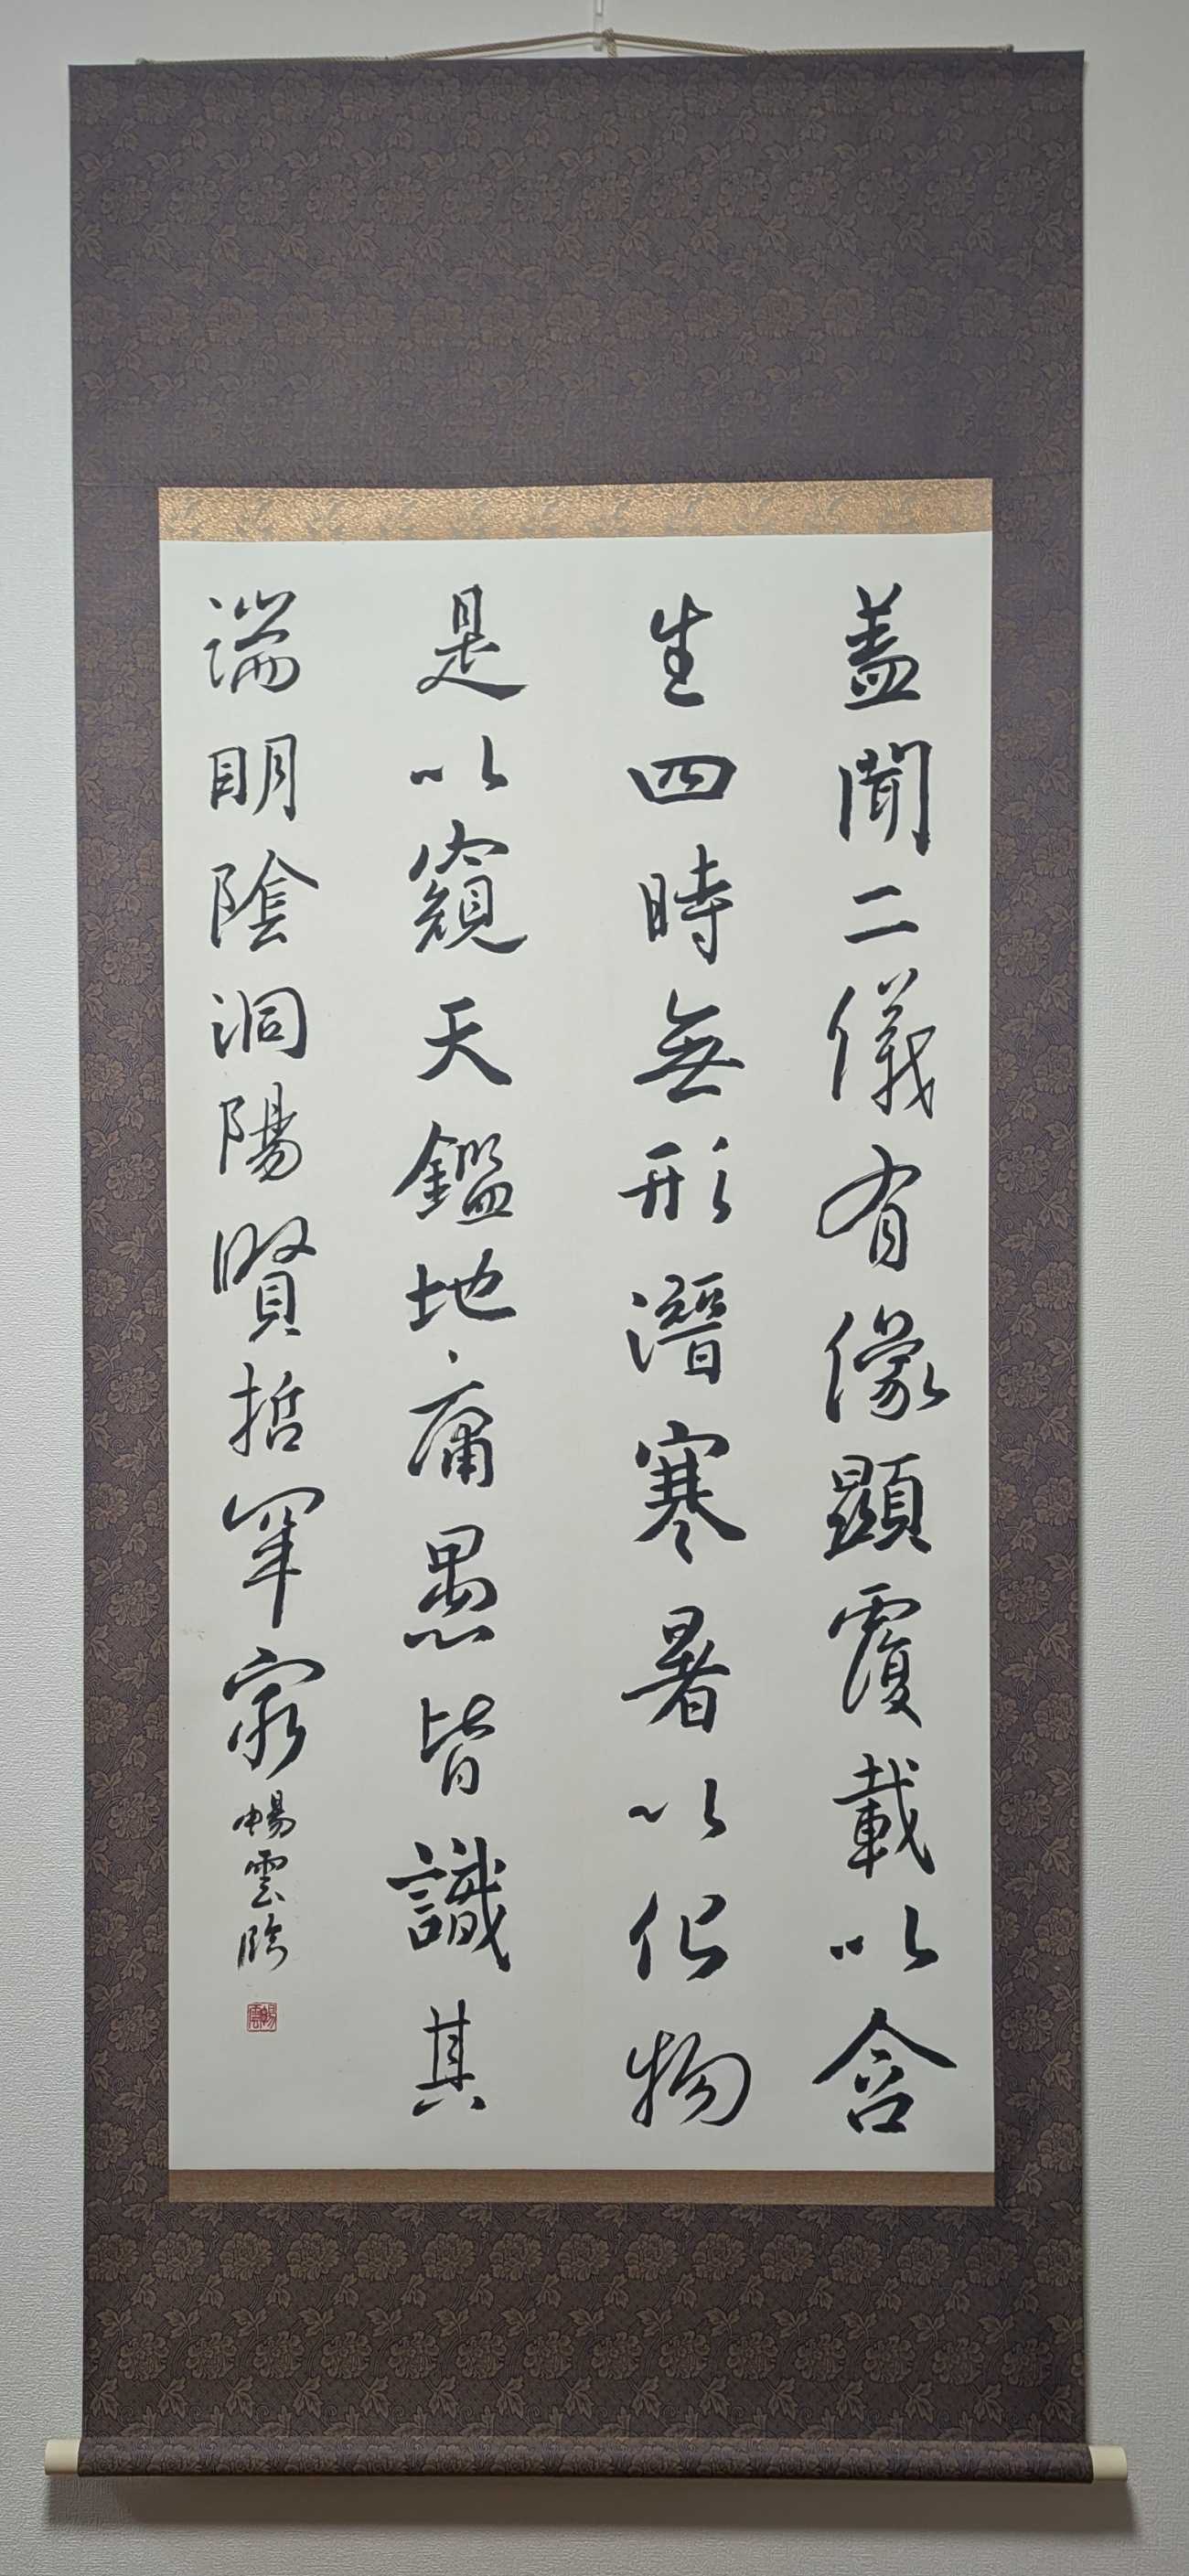 蓋聞二儀有像顯覆載以含
生四時無形潛寒暑以化物
是以窺天鑑地庸愚皆識其
端明陰洞陽賢哲罕窮
暢雲臨
暢雲